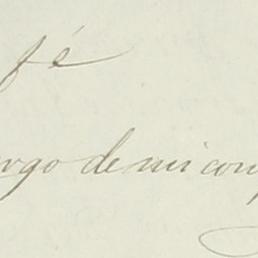 fé
rgo de mi con